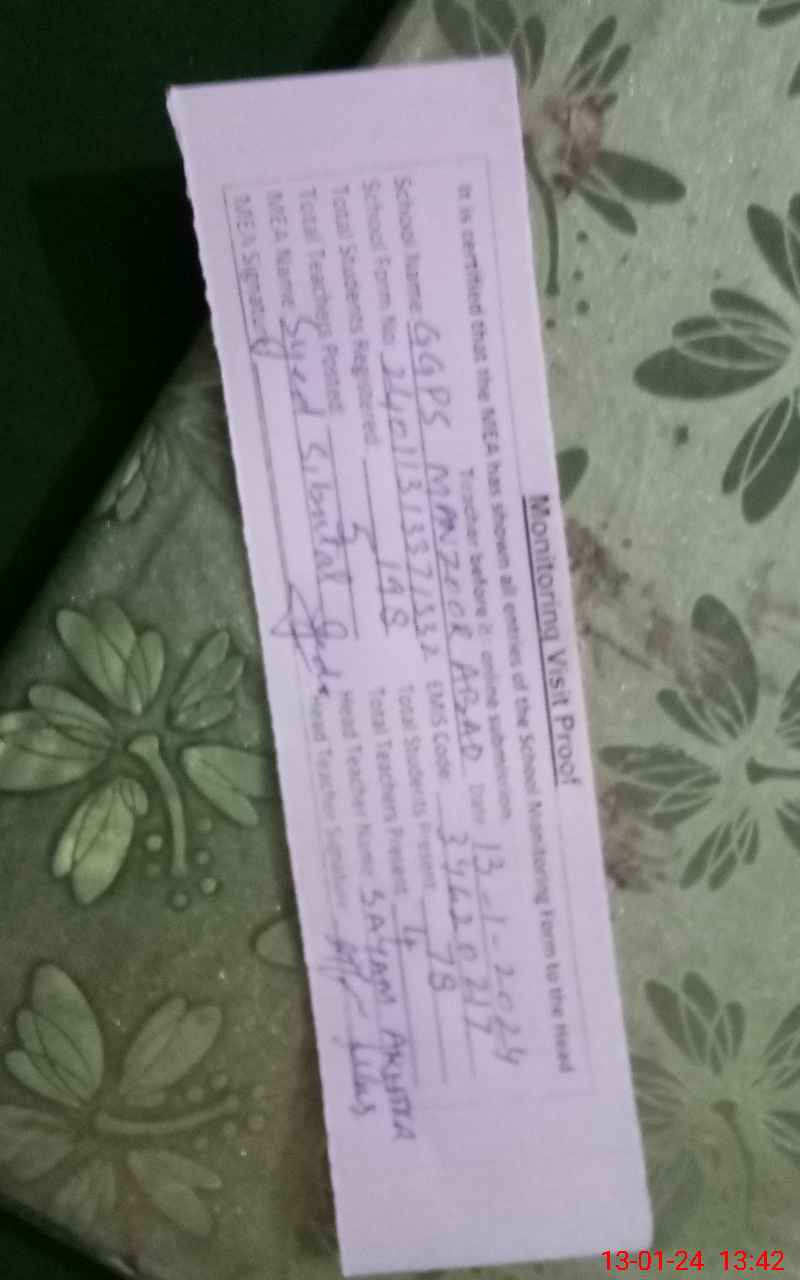 Monitoring Visit Proof
It is certified that the MEA has shown all entries of the School Monitoring Form to the Head
Teacher before it online submission.
School Name: GGPS MANZOOR ABAD Date: 13-1-2024
School Form No. EMIS Code: 34620217
Total Students Registered: 198 Total Students Present: 78
Total Teachers Posted: 5 Total Teachers Present: 4
MEA Name: Syed Head Teacher Name: SAYAM AKHTER
MEA Signature Head Teacher Signature:
13-01-24 13:42